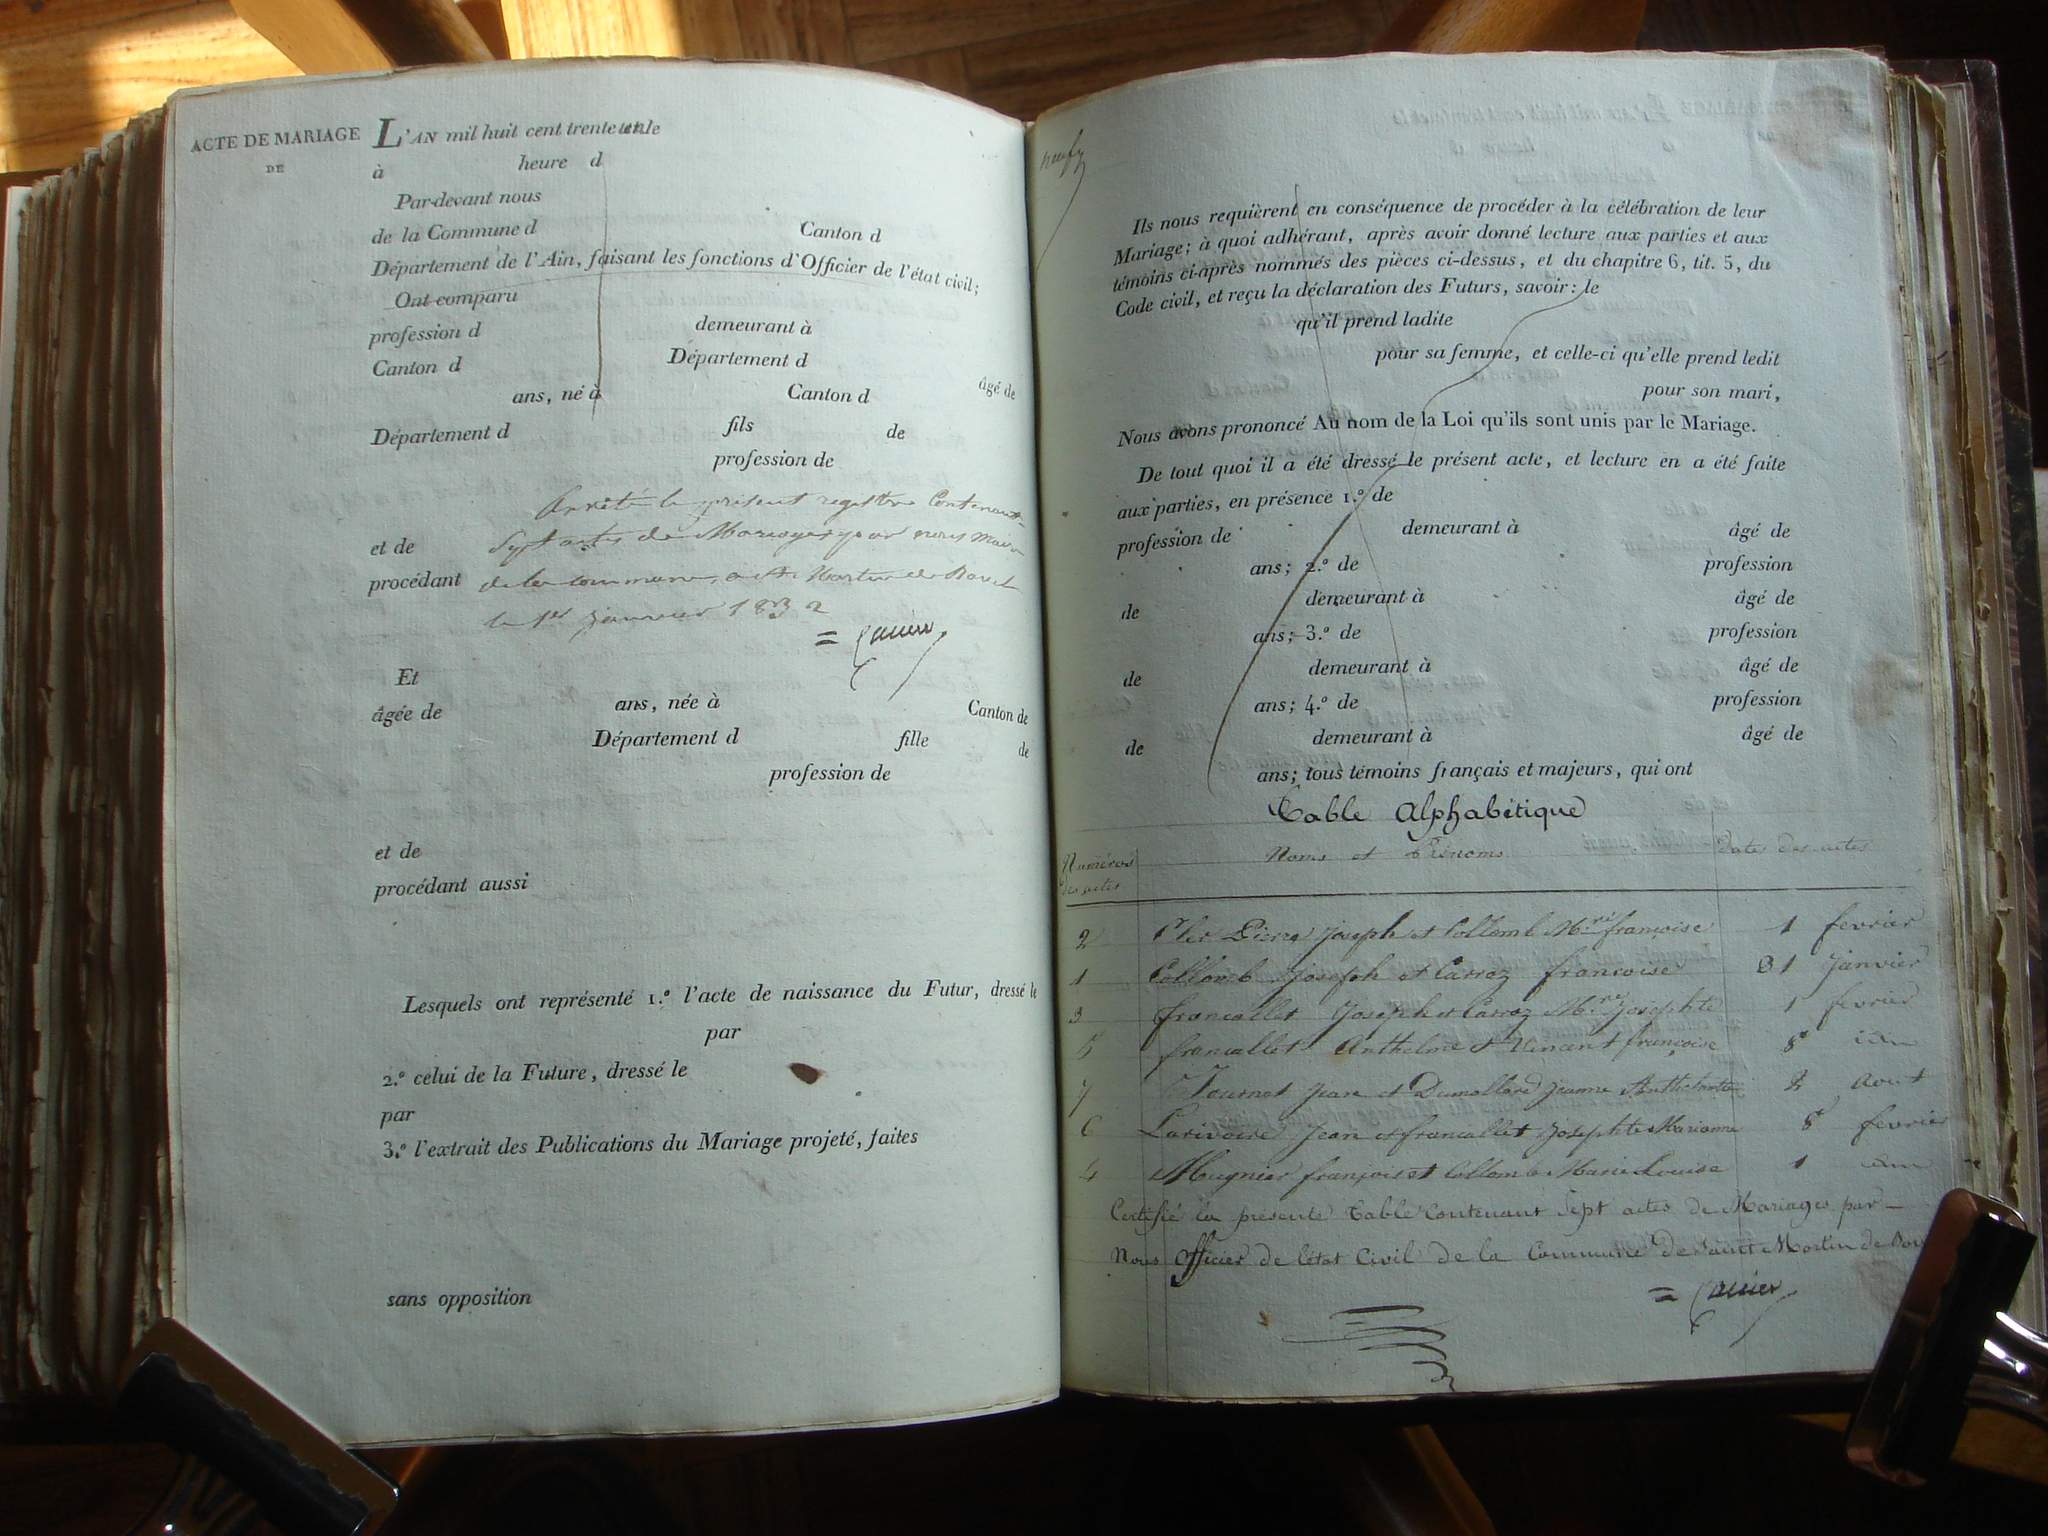 ACTE DE MARIAGE
DE
L'AN mil huit cent trente un le
à heure d
Par-devant nous
de la Commune d Canton d
Département de l'Ain, faisant les fonctions d'Officier de l'état civil;
Ont comparu
profession d demeurant à
Canton d Département d âgé de
ans, né à Canton d
Département d fils de
profession de
Arrêté le présent registre Contenant
et de Sept actes de Mariages par nous Maire
procédant de la commune de St Martin de Bavel
le 1er janvier 1832
= Cavier
Et
âgée de ans, née à Canton de
Département d fille de
profession de
et de
procédant aussi
Lesquels ont représenté 1.º l'acte de naissance du Futur, dressé le
par
2.º celui de la Future, dressé le
par
3.º l'extrait des Publications du Mariage projeté, faites
sans opposition
neuf
Ils nous requièrent en conséquence de procéder à la célébration de leur
Mariage; à quoi adhérant, après avoir donné lecture aux parties et aux
témoins ci-après nommés des pièces ci-dessus, et du chapitre 6, tit. 5, du
Code civil, et reçu la déclaration des Futurs, savoir: le
qu'il prend ladite
pour sa femme, et celle-ci qu'elle prend ledit
pour son mari,
Nous avons prononcé Au nom de la Loi qu'ils sont unis par le Mariage.
De tout quoi il a été dressé le présent acte, et lecture en a été faite
aux parties, en présence 1.º de
profession de demeurant à âgé de
ans; 2.º de profession
de demeurant à âgé de
ans; 3.º de profession
de demeurant à âgé de
ans; 4.º de profession
de demeurant à âgé de
ans; tous témoins français et majeurs, qui ont
Table Alphabétique
Numéros des actes Noms et Prénoms Dates des actes
2 Pierre Joseph et Collomb Mrie françoise 1 fevrier
1 Collomb Joseph et Carroz francoise 31 Janvier
3 francallet Joseph et Carroz Mrie Josephte 1 fevrier
5 francallet Anthelme et Vincent françoise 8 idem
7 Journet Jean et Dumollard Jeanne 2 Aout
6 Larivoire Jean et francallet Josephte Marianne 8 fevrier
4 Mugnier françois et Collomb Marie Louise 1 idem
Certifié la présente Table Contenant Sept actes de Mariages par
Nous Officier de l'état Civil de la Commune de Saint Martin de
= Cavier